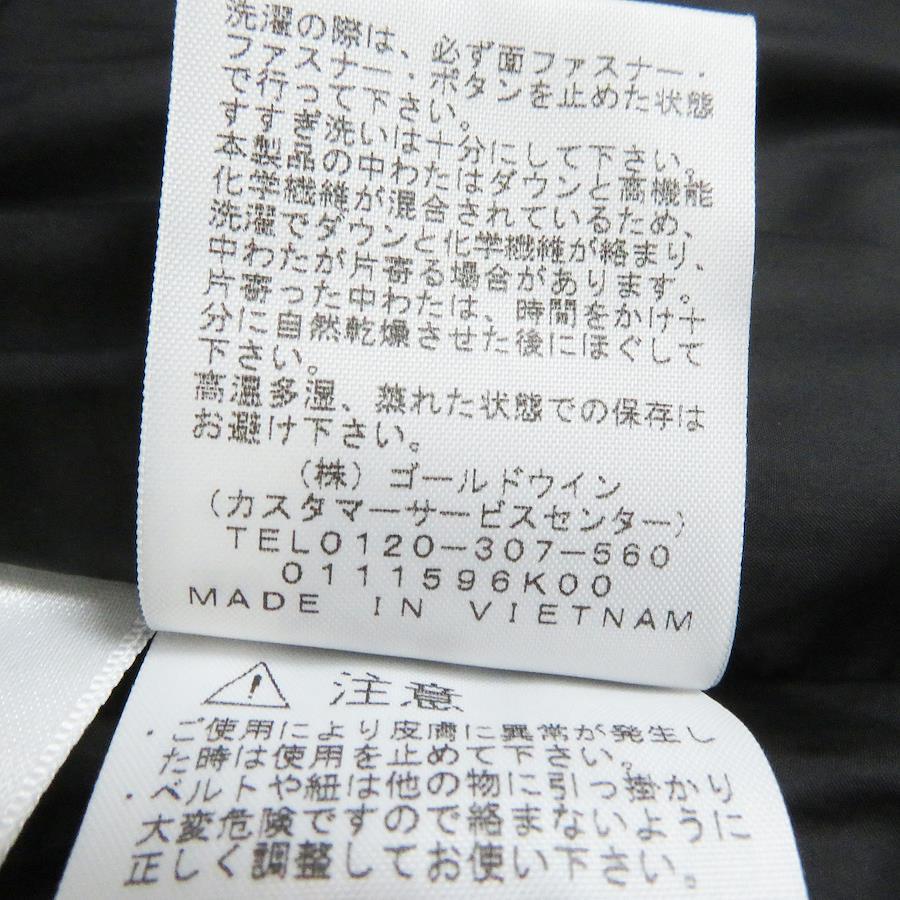 洗濯の際は、必ず面ファスナー・
ファスナー・ボタンを止めた状態
で行って下さい。
すすぎ洗いは十分にして下さい。
本製品の中わたはダウンと高機能
化学繊維が混合されているため、
洗濯でダウンと化学繊維が絡まり、
中わたが片寄る場合があります。
片寄った中わたは、時間をかけ十
分に自然乾燥させた後にほぐして
下さい。
高温多湿、蒸れた状態での保存は
お避け下さい。
(株)ゴールドウイン
(カスタマーサービスセンター)
TEL0120-307-560
0111596K00
MADE IN VIETNAM
注意
・ご使用により皮膚に異常が発生し
た時は使用を止めて下さい。
・ベルトや紐は他の物に引っ掛かり
大変危険ですので絡まないように
正しく調整してお使い下さい。